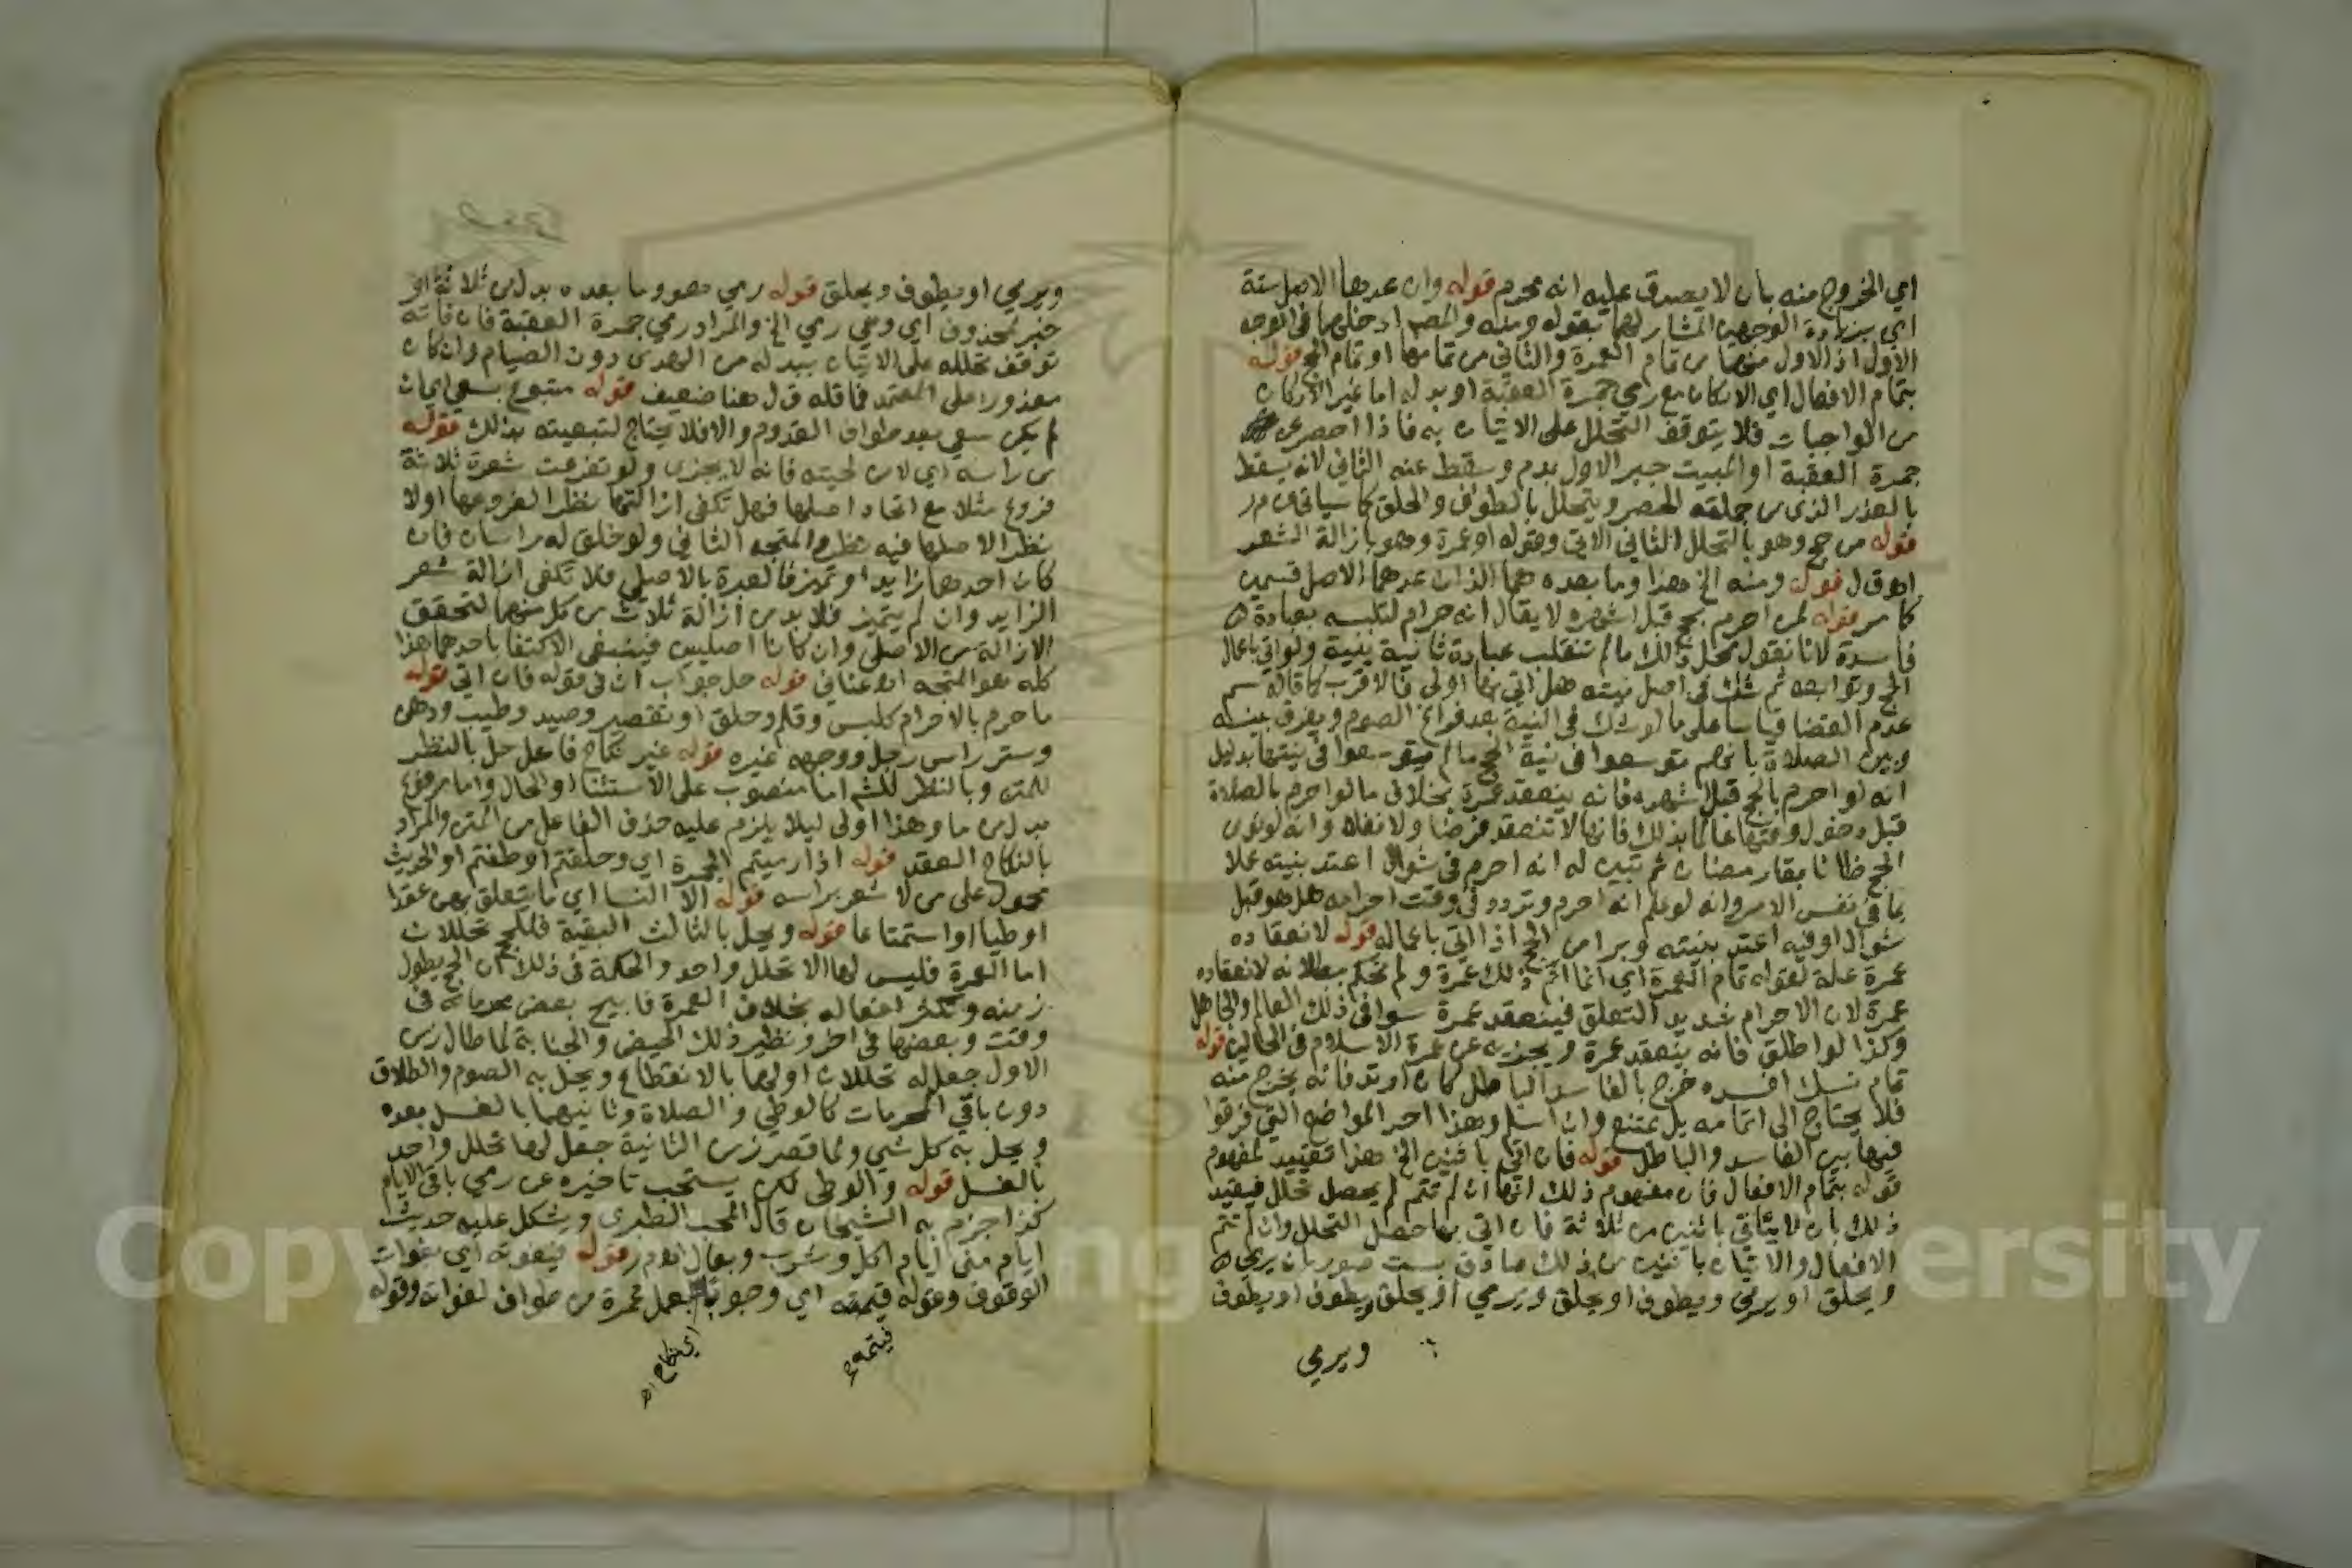 اي الخروج منه بان لا يصدق عليه انه محرم قوله وان عدها الاصل ستة
اي بزيادة الوجهين المشار لهما بقوله ومنه والمصـ ادخلهما في الوجه
الاول اذ الاول منهما من تمام العمرة والثاني من تمامها او تمام الحج قوله
بتمام الافعال اي الاركان مع رمي جمرة العقبة او بدله اما غير الاركان
من الواجبات فلا يتوقف التحلل على الاتيان به فاذا احصر عن
جمرة العقبة او المبيت جبر الاول بدم وسقط عنه الثاني لانه يسقط
بالعذر الذي من جملته الحصر ويتحلل بالطواف والحلق كما سياتي م ر
قوله من حج وهو بالتحلل الثاني الاتي وقوله او عمرة وهو بازالة الشعر
اهـ ق ل قوله ومنه الخ هذا وما بعده هما الذان عدهما الاصل قسمين
كما مر قوله لمن احرم بحج قبل اشهره لا يقال انه حرام لتلبسه بعبادة
فاسدة لانا نقول محل ذلك ما لم تنقلب عبادة ثانية بنية ولو اتي باعمال
الحج وتوابعه ثم شك في اصل نيته هل اتي بها اولى فالاقرب كما قاله سم
عدم القضا قياسا على ما لو شك في النية بعد فراغ الصوم ويفرق بينه
وبين الصلاة بانهم توسعوا في نية الحج ما لم يتوسعوا في نيتها بدليل
انه لو احرم بالحج قبل اشهره فانه ينعقد عمرة بخلاف ما لو احرم بالصلاة
قبل دخول وقتها عالما بذلك فانها لا تنعقد فرضا ولا نفلا وانه لو نوى
الحج ظانا بقا رمضان ثم تبين له انه احرم في شوال اعتد بنيته عملا
بما في نفس الامر وانه لو علم انه احرم وتردد في وقت احرامه هل هو قبل
شوال او فيه اعتد بنيته وبرا من الحج اذا اتي باعماله قوله لانعقاده
عمرة علة لقوله تمام العمرة اي انما اتم ذلك عمرة ولم نحكم ببطلانه لانعقاده
عمرة لان الاحرام شديد التعلق فينعقد عمرة سوا في ذلك العالم والجاهل
وكذا لو اطلق فانه ينعقد عمرة ويجزيه عن عمرة الاسلام في الحالين قوله
تمام نسك افسده خرج بالفاسد الباطل كان ارتد فانه يخرج منه
فلا يحتاج الى اتمامه بل يمتنع وان اسلم وهذا احد المواضع التي فرقوا
فيها بين الفاسد والباطل قوله فان اتي باثنين الخ هذا تقييد لمفهوم
قوله بتمام الافعال فان مفهوم ذلك انها ان لم تتم لم يحصل تحلل فيقيد
ذلك بان لا ياتي باثنين من ثلاثة فان اتي بها حصل التحلل وان لم تتم
الافعال والاتيان باثنين من ذلك صادق بست صور بان يرمي
ويحلق او يرمي ويطوف او يحلق ويرمي او يحلق ويطوف او يطوف
ويرمي
ويرمي او يطوف ويحلق قوله رمي هو وما بعده بدل من ثلاثة او
خبر لمحذوف اي وهي رمي الخ والمراد رمي جمرة العقبة فان فاته
توقف تحلله على الاتيان ببدله من الهدي دون الصيام وان كان
معذورا على المعتمد فما قاله ق ل هنا ضعيف قوله متبوع بسعي اي ان
لم يكن سعي بعد طواف القدوم والا فلا يحتاج لتبعيته بذلك قوله
من راسه اي لا من لحيته فانه لا يجزي ولو تفرعت شعرة ثلاثة
فروع مثلا مع اتحاد اصلها فهل تكفي ازالتها نظرا لفروعها اولا
نظرا لاصلها فيه نظر والمتجه الثاني ولو خلق له راسان فان
كان احدهما زايدا وتميز فالعبرة بالاصلي فلا تكفي ازالة شعر
الزايد وان لم يتميز فلا بد من ازالة ثلاث من كل منهما لتحقق
الازالة من الاصلي وان كانا اصليين فينبغي الاكتفا باحدهما هذا
كله هو المتجه اهـ عناني قوله حل جواب ان في قوله فان اتي قوله
ما حرم بالاحرام كلبس وقلم وحلق او تقصير وصيد وطيب ودهن
وستر راس رجل ووجه غيره قوله غير نكاح فاعل حل بالنظر
للمتن وبالنظر للشـ اما منصوب على الاستثنا او الحال واما مرفوع
بدل من ما وهذا اولى ليلا يلزم عليه حذف الفاعل من المتن والمراد
بالنكاح العقد قوله اذا رميتم الجمرة اي وحلقتم او طفتم او الحديث
محمول على من لا شعر براسه قوله الا النسا اي ما يتعلق بهن عقدا
او وطيا او استمتاعا قوله ويحل بالثالث البقية فللحج تحللان
اما العمرة فليس لها الا تحلل واحد والحكمة في ذلك ان الحج يطول
زمنه وتكثر افعاله بخلاف العمرة فابيح بعض محرماته في
وقت وبعضها في اخر ونظير ذلك الحيض والجنابة لما طال زمن
الاول جعل له تحللان اولهما بالانقطاع ويحل به الصوم والطلاق
دون باقي المحرمات كالوطي والصلاة وثانيهما بالغسل بعده
ويحل به كل شي ولما قصر زمن الثانية جعل لها تحلل واحد
بالغسل قوله والوطى لكن يستحب تاخيره عن رمي باقي الايام
كذا جزم به الشيخان قال المحب الطبري ويشكل عليه حديث
ايام منى ايام اكل وشرب وبعال اهـ م ر قوله فيفوته اي بفوات
الوقوف وقوله فيتمه اي وجوبا بعمل عمرة من طواف لفوات وقوله
فيتمه
اي نكاح اهـ